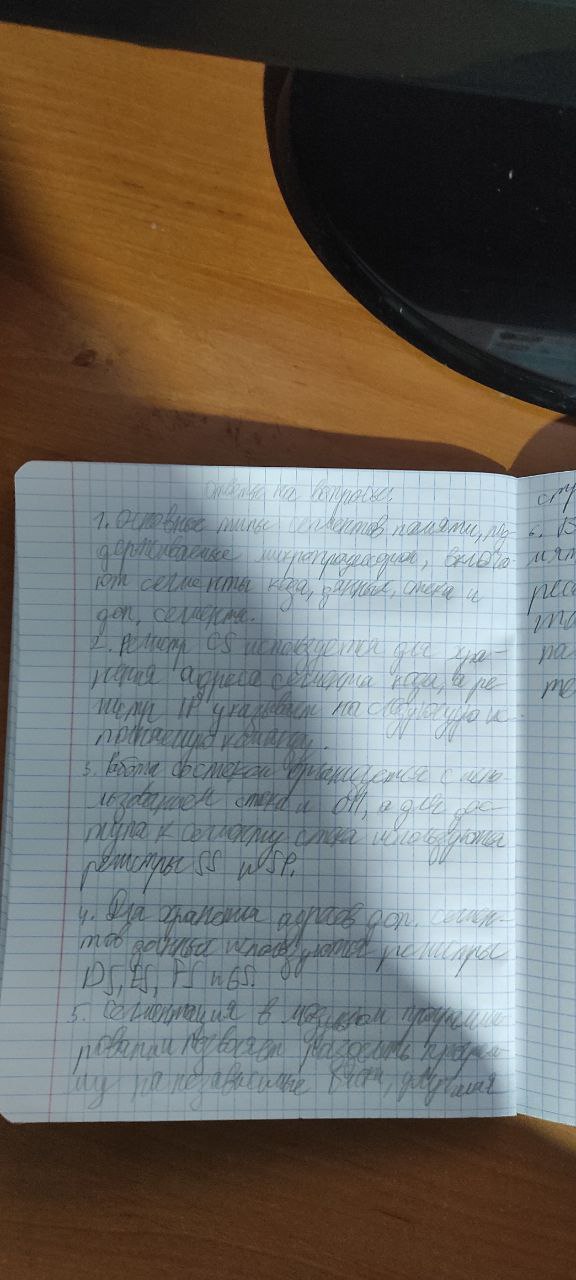 Ответы на вопросы:
1. Основные типы сегментов памяти, под
держиваемые микропроцессором, включа-
ют сегменты кода, данных, стека и
доп. сегменты.
2. Регистр CS используется для хра-
нения адреса сегмента кода, а ре-
гистр IP указывает на следующую ис
полняемую команду.
3. Работа со стеком организуется с испо-
льзованием стека и ОП, а для дос-
тупа к сегменту стека используются
регистры SS и SP.
4. Для хранения адресов доп. сегмен-
тов данных используются регистры
DS, ES, FS и GS.
5. Сегментация в модульном программи
ровании позволяет разделить програм-
му на независимые
стр
6. В
мят
рес
та
па
те